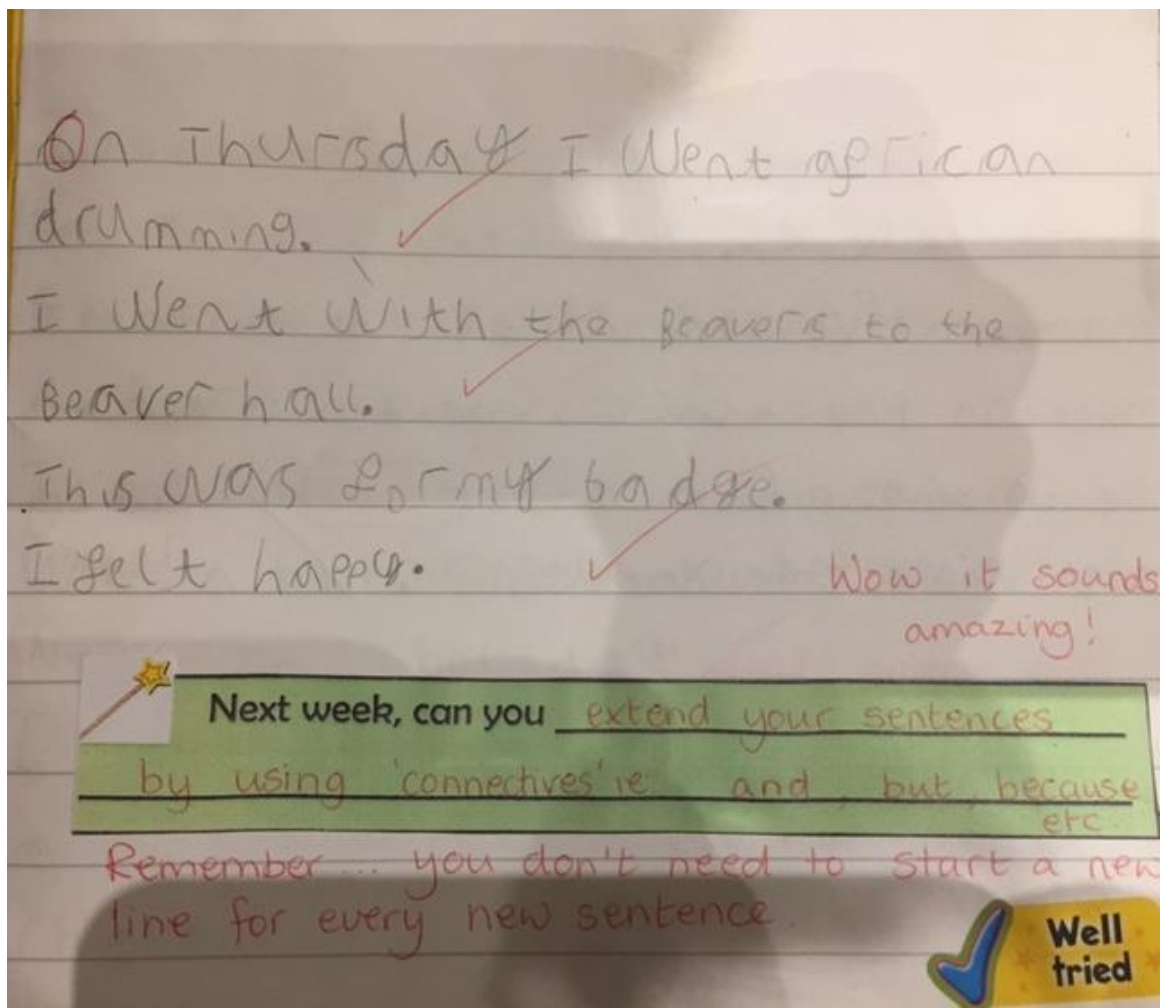 On Thursday I Went african
drumming.
I Went With the Beavers to the
Beaver hall.
This was for my badge.
I felt happy.
Wow it sounds
amazing!
Next week, can you extend your sentences
by using 'connectives' ie and, but, because
etc
Remember... you don't need to start a new
line for every new sentence.
Well
tried